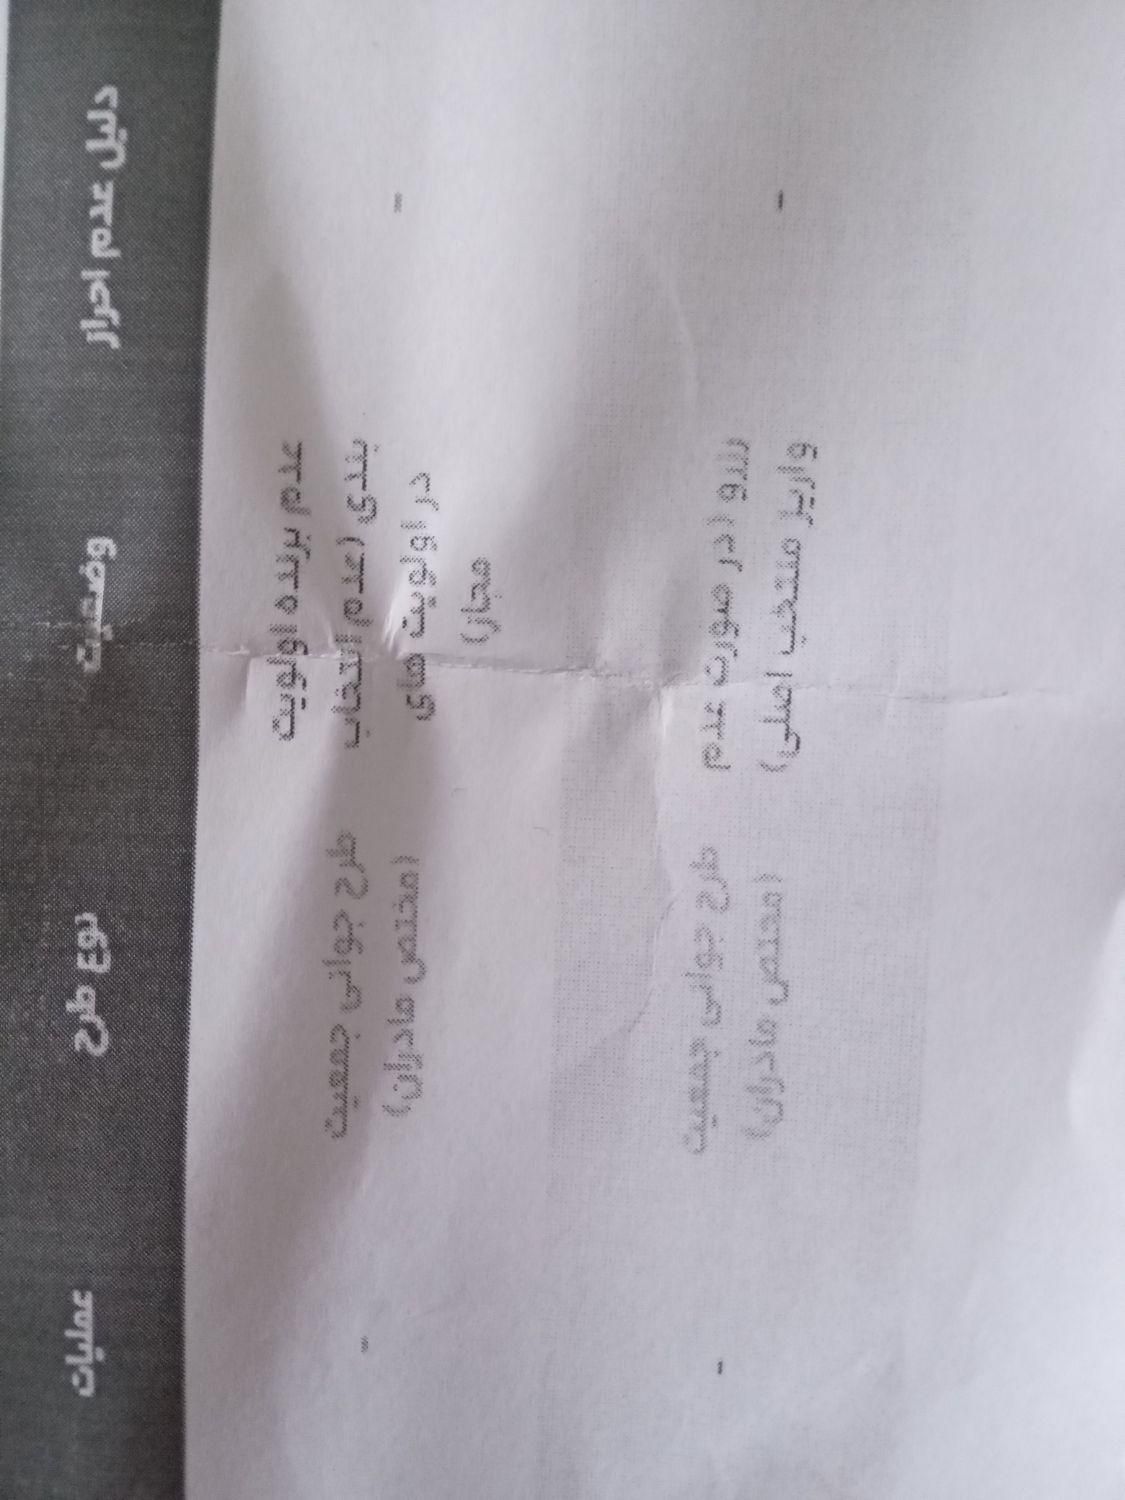 دلیل عدم احراز
وضعیت
نوع طرح
عملیات
-
عدم برنده اولویت
بندی (عدم انتخاب
در اولویت های
مجاز)
طرح جوانی جمعیت
(مختص مادران)
-
-
رزرو (در صورت عدم
واریز منتخب اصلی)
طرح جوانی جمعیت
(مختص مادران)
-